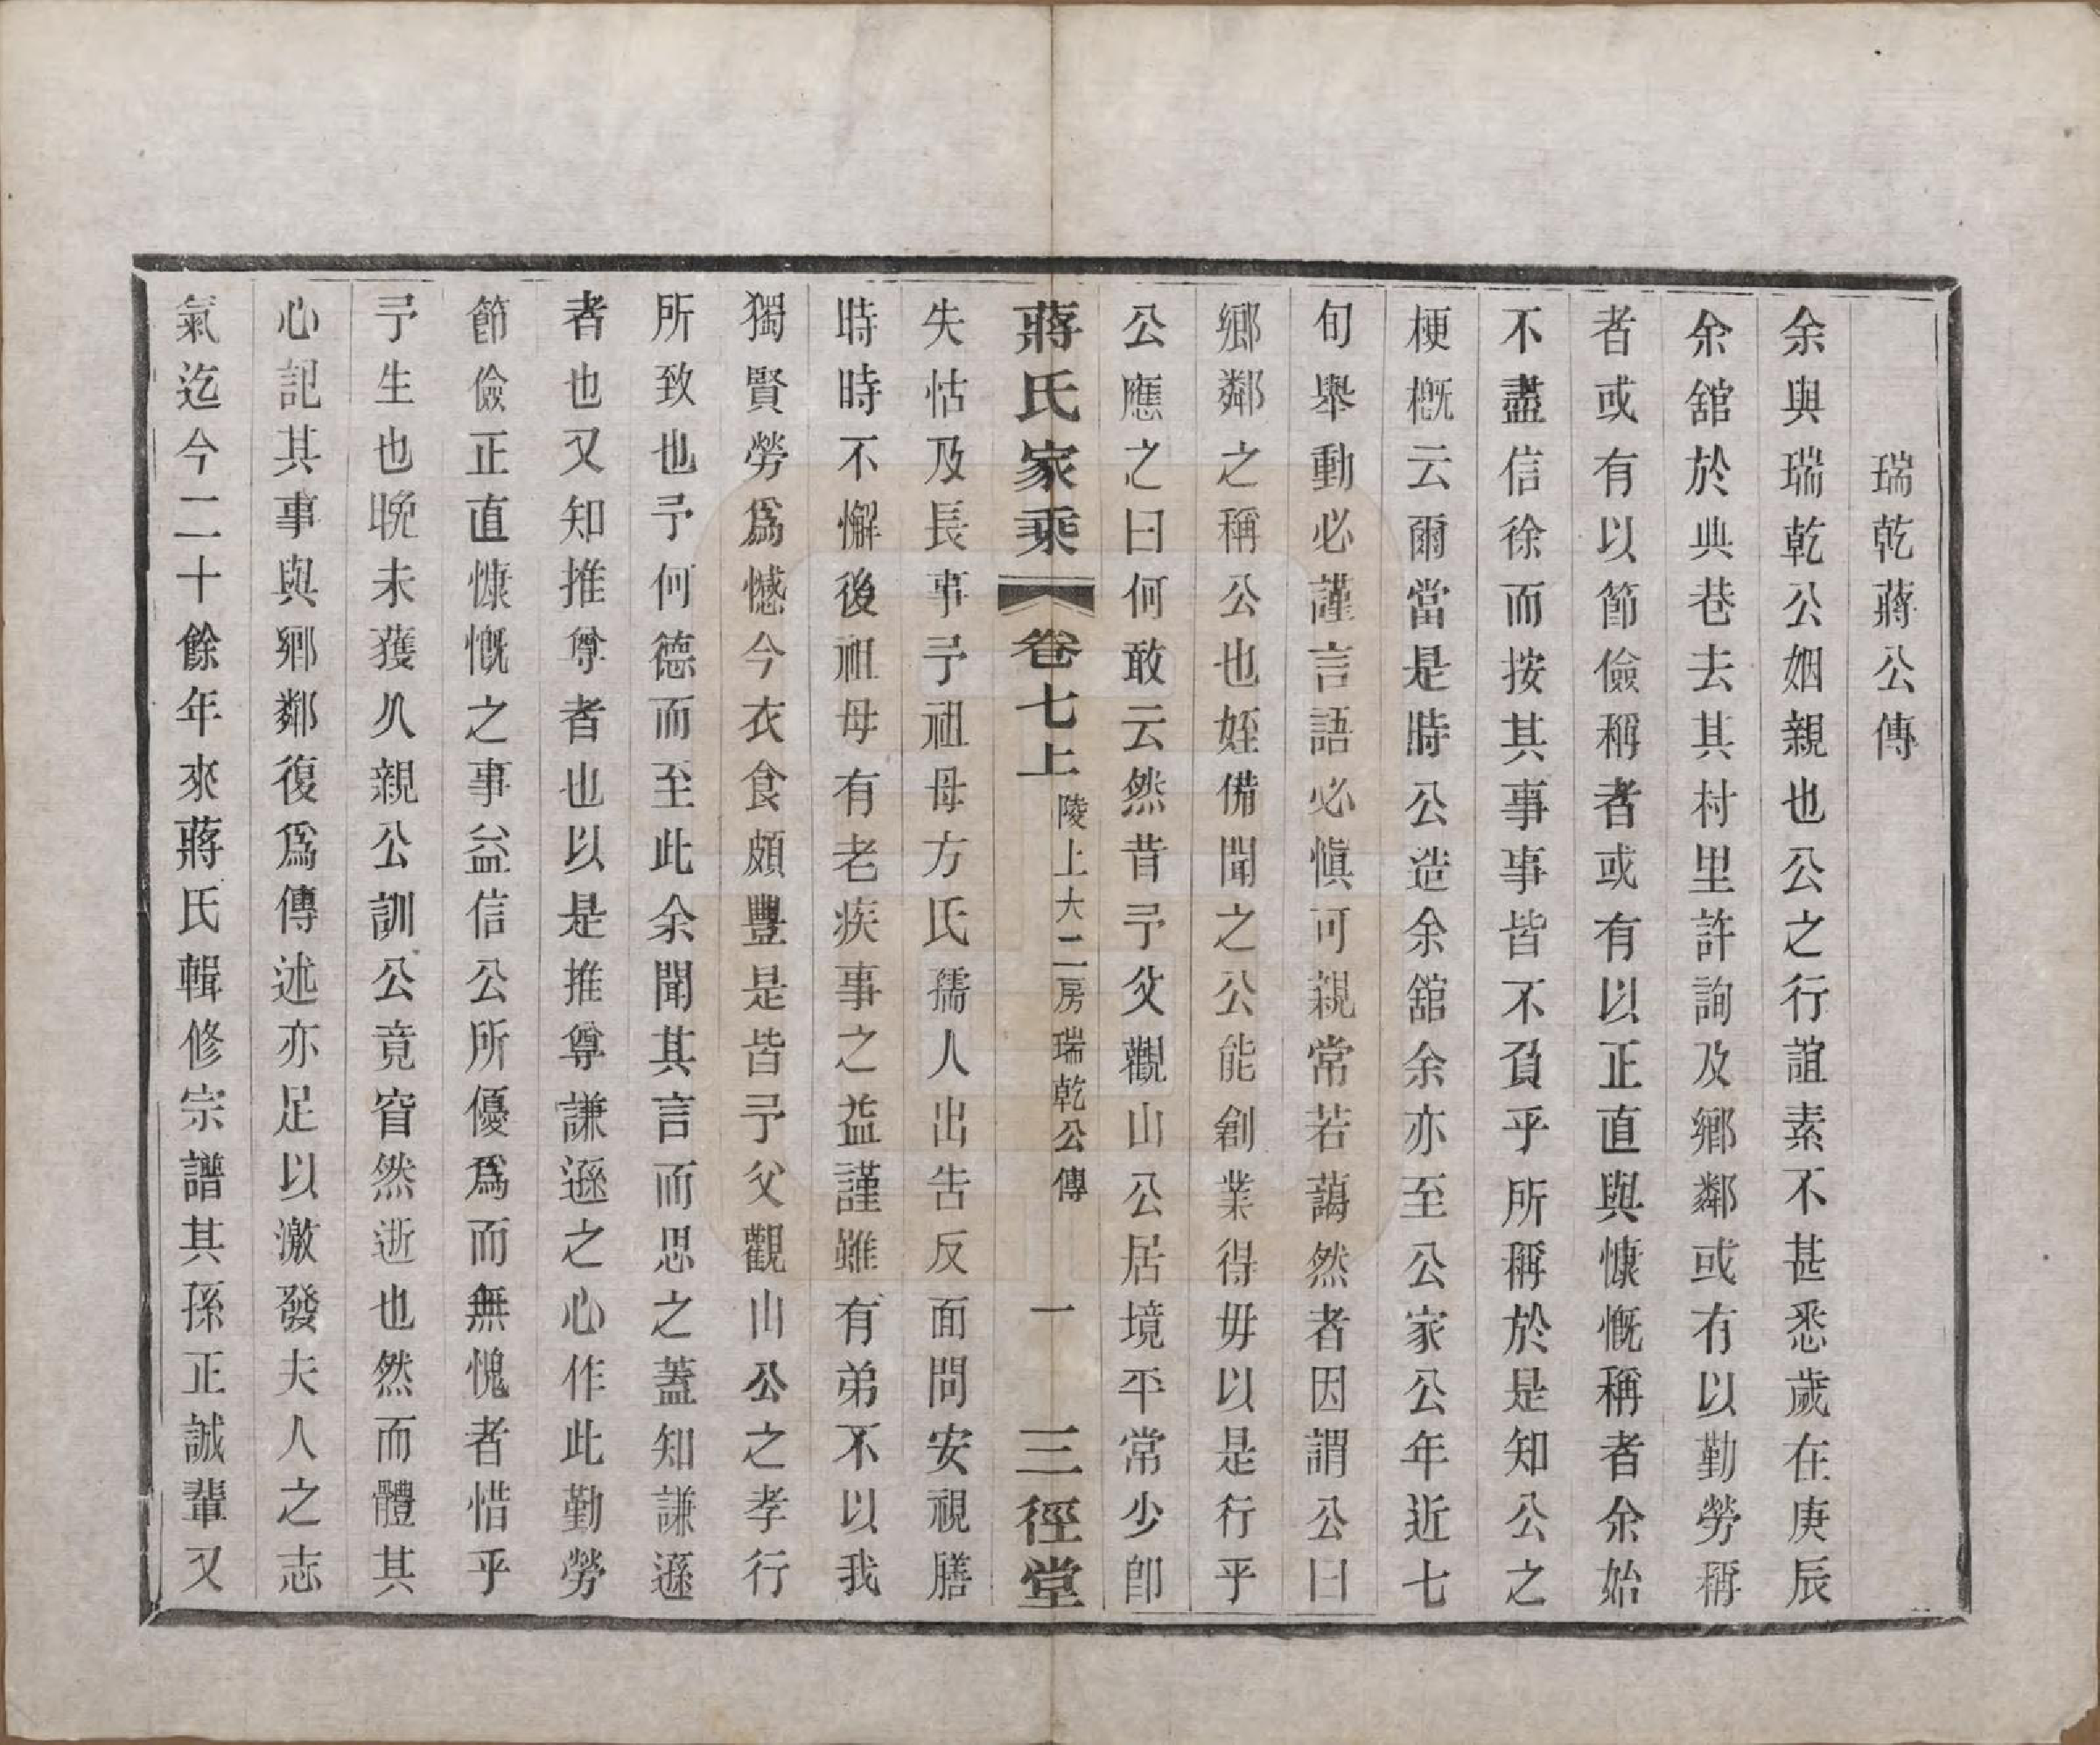 瑞乾蔣公傳
余與瑞乾公姻親也公之行誼素不甚悉歲在庚辰
余舘於典巷去其村里許詢及鄉鄰或有以勤勞稱
者或有以節儉稱者或有以正直與慷慨稱者余始
不盡信徐而按其事事皆不負乎所稱於是知公之
梗概云爾當是時公造余舘余亦至公家公年近七
旬舉動必謹言語必愼可親常若藹然者因謂公曰
鄉鄰之稱公也姪備聞之公能創業得毋以是行乎
公應之曰何敢云然昔予父觀山公居境平常少卽
蔣氏家乘 卷七上 陵上大二房瑞乾公傳 一 三徑堂
失怙及長事予祖母方氏孺人出告反面問安視膳
時時不懈後祖母有老疾事之益謹雖有弟不以我
獨賢勞爲憾今衣食頗豐是皆予父觀山公之孝行
所致也予何德而至此余聞其言而思之蓋知謙遜
者也又知推尊者也以是推尊謙遜之心作此勤勞
節儉正直慷慨之事益信公所優爲而無愧者惜乎
予生也晚未獲久親公訓公竟窅然逝也然而體其
心記其事與鄉鄰復爲傳述亦足以激發夫人之志
氣迄今二十餘年來蔣氏輯修宗譜其孫正誠輩又